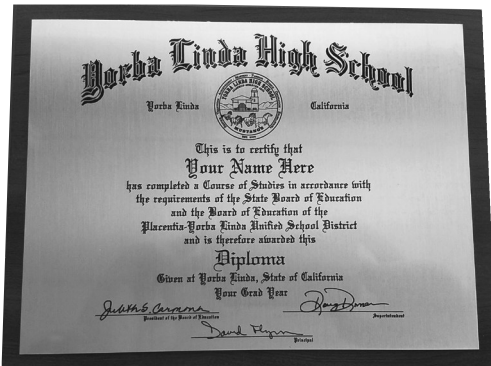 Yorba Linda High School
Yorba Linda California
YORBA LINDA HIGH SCHOOL
MUSTANGS
This is to certify that
Your Name Here
has completed a Course of Studies in accordance with
the requirements of the State Board of Education
and the Board of Education of the
Placentia-Yorba Linda Unified School District
and is therefore awarded this
Diploma
Given at Yorba Linda, State of California
Your Grad Year
Judith S. Carmona
President of the Board of Education
Superintendent
David Flynn
Principal